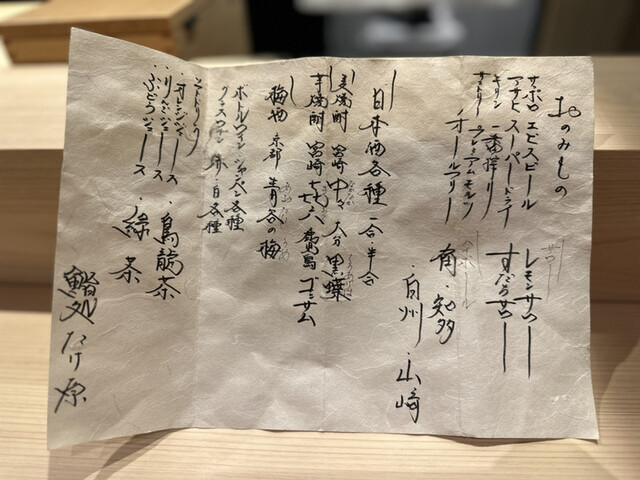 おのみもの
サッポロ エビスビール
アサヒ スーパードライ
キリン 一番搾り
サントリー プレミアムモルツ
オールフリー
サワー
レモンサワー
すだちサワー
ハイボール
・知多
・白州 ・山崎
日本酒各種 一合・半合
麦焼酎 宮崎 中々 大分
芋焼酎 宮崎
梅酒 京都 青谷の梅
ボトルワイン シャンパン各種
グラスワイン 赤・白各種
ソフトドリンク
・オレンジジュース
・りんごジュース
・ぶどうジュース
・烏龍茶
・緑茶
鮨処 たけ原